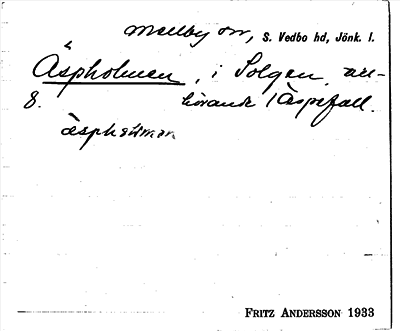 Mellby sn, S. Vedbo hd, Jönk. l.
Äspholmen, i Solgen, till-
8. hörande Äspefall.
äsphɷlman
Fritz Andersson 1933